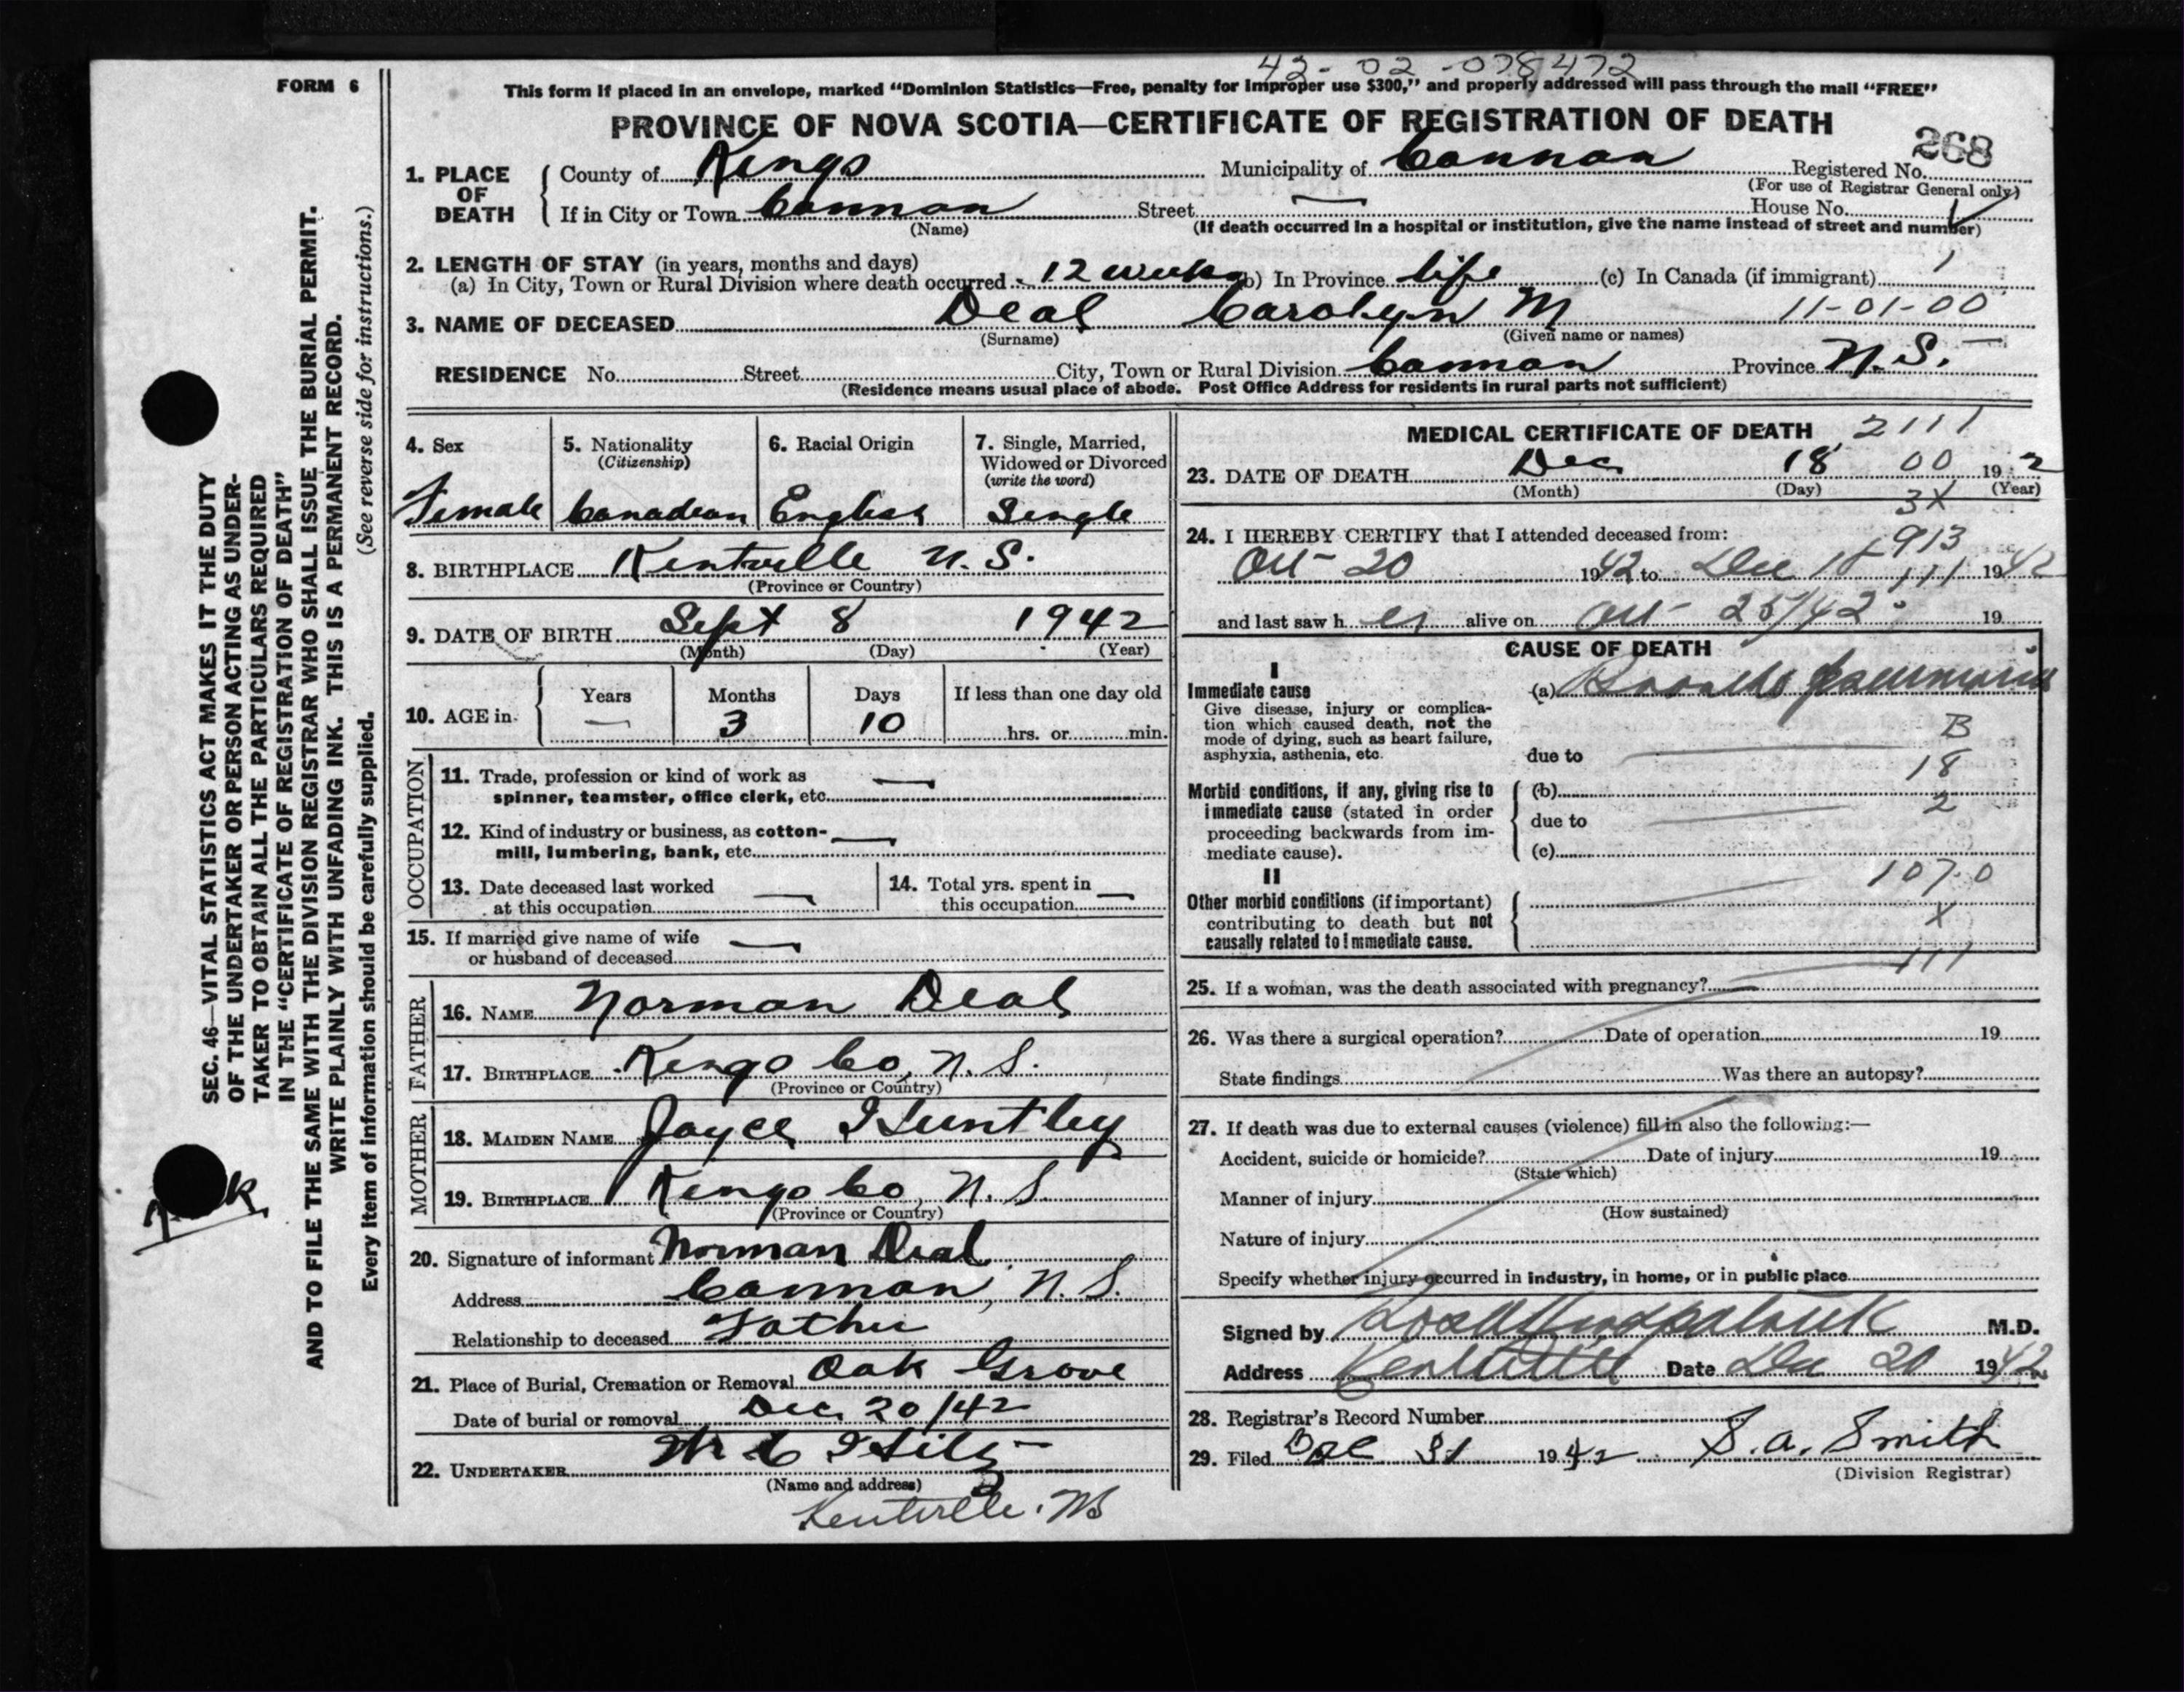 42-02-078472
FORM 6
This form if placed in an envelope, marked "Dominion Statistics—Free, penalty for improper use $300," and properly addressed will pass through the mail "FREE"
PROVINCE OF NOVA SCOTIA—CERTIFICATE OF REGISTRATION OF DEATH
268
1. PLACE OF DEATH
County of Kings Municipality of Cannan Registered No.
(For use of Registrar General only)
If in City or Town Cannan Street — House No.
(Name) (If death occurred in a hospital or institution, give the name instead of street and number)
2. LENGTH OF STAY (in years, months and days)
(a) In City, Town or Rural Division where death occurred 12 weeks (b) In Province life (c) In Canada (if immigrant)
3. NAME OF DECEASED Deal Carolyn M 11-01-00
(Surname) (Given name or names)
RESIDENCE No. Street City, Town or Rural Division Cannan Province N.S.
(Residence means usual place of abode. Post Office Address for residents in rural parts not sufficient)
SEC. 46—VITAL STATISTICS ACT MAKES IT THE DUTY
OF THE UNDERTAKER OR PERSON ACTING AS UNDER-
TAKER TO OBTAIN ALL THE PARTICULARS REQUIRED
IN THE "CERTIFICATE OF REGISTRATION OF DEATH"
AND TO FILE THE SAME WITH THE DIVISION REGISTRAR WHO SHALL ISSUE THE BURIAL PERMIT.
WRITE PLAINLY WITH UNFADING INK. THIS IS A PERMANENT RECORD.
(See reverse side for instructions.)
Every item of information should be carefully supplied.
4. Sex 5. Nationality 6. Racial Origin 7. Single, Married,
(Citizenship) Widowed or Divorced
(write the word)
Female Canadian English Single
8. BIRTHPLACE Kentville N.S.
(Province or Country)
9. DATE OF BIRTH Sept 8 1942
(Month) (Day) (Year)
10. AGE in Years Months Days If less than one day old
— 3 10 hrs. or min.
OCCUPATION
11. Trade, profession or kind of work as —
spinner, teamster, office clerk, etc.
12. Kind of industry or business, as cotton- —
mill, lumbering, bank, etc.
13. Date deceased last worked — 14. Total yrs. spent in —
at this occupation this occupation
15. If married give name of wife —
or husband of deceased
FATHER
16. NAME Norman Deal
17. BIRTHPLACE Kings Co, N.S.
(Province or Country)
MOTHER
18. MAIDEN NAME Joyce Huntley
19. BIRTHPLACE Kings Co, N.S.
(Province or Country)
20. Signature of informant Norman Deal
Address Cannan, N.S.
Relationship to deceased Father
21. Place of Burial, Cremation or Removal Oak Grove
Date of burial or removal Dec. 20/42
22. UNDERTAKER
(Name and address)
Kentville. NS
MEDICAL CERTIFICATE OF DEATH 2111
23. DATE OF DEATH Dec. 18 00 19 2
(Month) (Day) (Year)
3X
24. I HEREBY CERTIFY that I attended deceased from:
913
Oct 20 1942 to Dec 18 111 1942
and last saw h er alive on Oct 25/42 19
CAUSE OF DEATH
I
Immediate cause (a) Broncho pneumonia
Give disease, injury or complica-
tion which caused death, not the
mode of dying, such as heart failure,
asphyxia, asthenia, etc.
B
due to
18
Morbid conditions, if any, giving rise to (b)
immediate cause (stated in order due to 2
proceeding backwards from im-
mediate cause). (c)
II 107.0
Other morbid conditions (if important)
contributing to death but not X
causally related to immediate cause.
111
25. If a woman, was the death associated with pregnancy?
26. Was there a surgical operation? Date of operation 19
State findings Was there an autopsy?
27. If death was due to external causes (violence) fill in also the following:—
Accident, suicide or homicide? Date of injury 19
(State which)
Manner of injury
(How sustained)
Nature of injury
Specify whether injury occurred in industry, in home, or in public place
Signed by M.D.
Address Kentville Date Dec 20 1942
28. Registrar's Record Number
29. Filed Dec 31 1942 S. A. Smith
(Division Registrar)